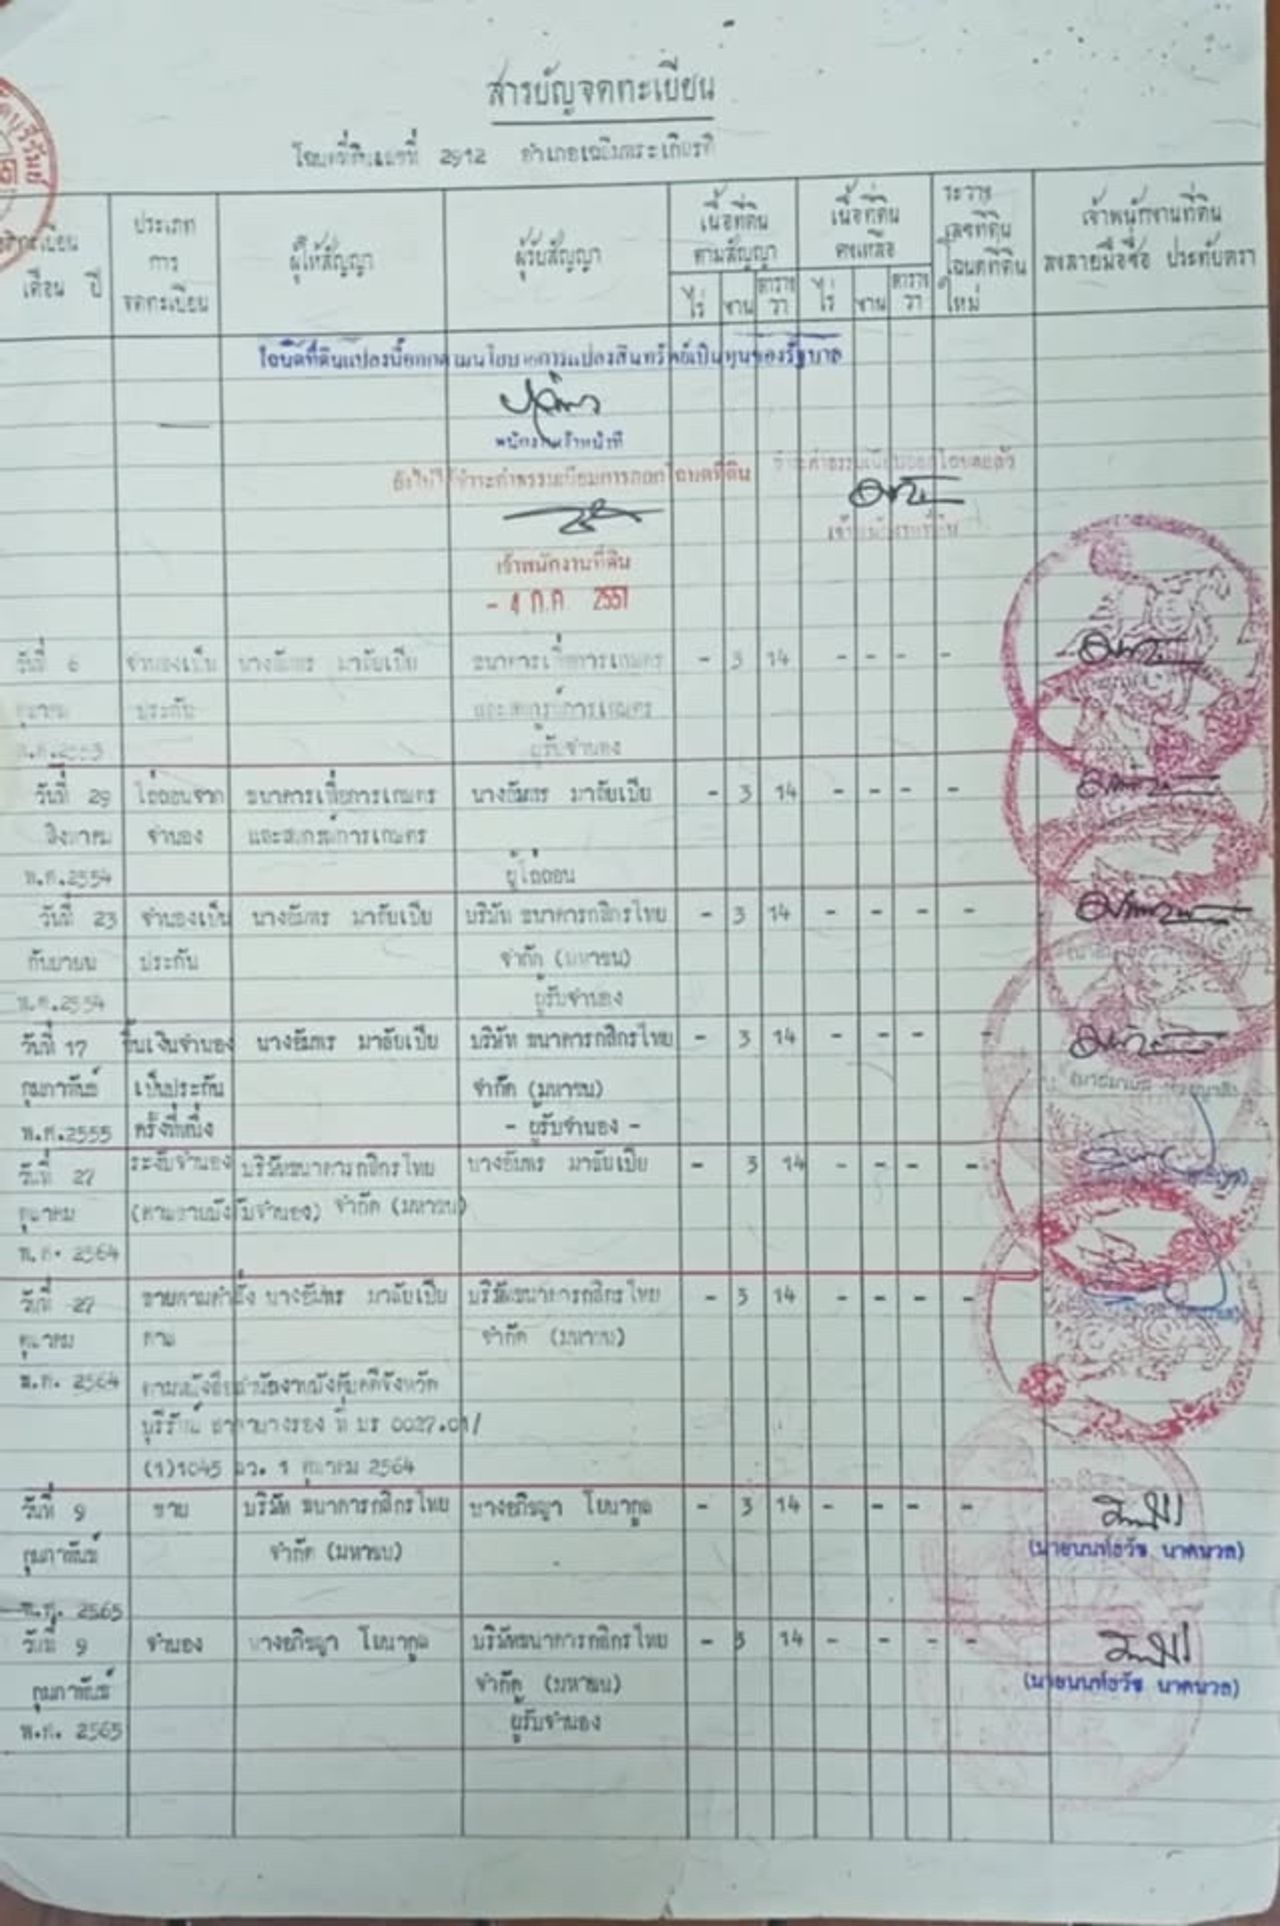 สารบัญจดทะเบียน
โฉนดที่ดินเลขที่ 2912 อำเภอเฉลิมพระเกียรติ
จดทะเบียน
เดือน ปี
ประเภท
การ
จดทะเบียน
ผู้ให้สัญญา
ผู้รับสัญญา
เนื้อที่ดิน
ตามสัญญา
ไร่ งาน ตาราง
วา
เนื้อที่ดิน
คงเหลือ
ไร่ งาน ตาราง
วา
ระวาง
เลขที่ดิน
โฉนดที่ดิน
ใหม่
เจ้าพนักงานที่ดิน
ลงลายมือชื่อ ประทับตรา
โฉนดที่ดินแปลงนี้ออกตามนโยบายการแปลงสินทรัพย์เป็นทุนของรัฐบาล
พนักงานเจ้าหน้าที่
ยังไม่ได้ชำระค่าธรรมเนียมการออกโฉนดที่ดิน
ชำระค่าธรรมเนียมออกโฉนดแล้ว
เจ้าพนักงานที่ดิน
เจ้าพนักงานที่ดิน
- 4 ก.ค. 2551
วันที่ 6 จำนองเป็น มาลัยเปีย ธนาคารเพื่อการเกษตร - 3 14 - - - -
ตุลาคม ประกัน และสหกรณ์การเกษตร
ผู้รับจำนอง
วันที่ 29 ไถ่ถอนจาก ธนาคารเพื่อการเกษตร มาลัยเปีย - 3 14 - - - -
สิงหาคม จำนอง และสหกรณ์การเกษตร
พ.ศ.2554 ผู้ไถ่ถอน
วันที่ 23 จำนองเป็น มาลัยเปีย บริษัท ธนาคารกสิกรไทย - 3 14 - - - -
กันยายน ประกัน จำกัด (มหาชน)
พ.ศ.2554 ผู้รับจำนอง
วันที่ 17 ขึ้นเงินจำนอง มาลัยเปีย บริษัท ธนาคารกสิกรไทย - 3 14 - - - -
กุมภาพันธ์ เป็นประกัน จำกัด (มหาชน)
พ.ศ.2555 ครั้งที่หนึ่ง - ผู้รับจำนอง -
วันที่ 27 ระงับจำนอง บริษัทธนาคารกสิกรไทย มาลัยเปีย - 3 14 - - - -
ตุลาคม (ศาลขายบังคับจำนอง) จำกัด (มหาชน)
พ.ศ. 2564
วันที่ 27 ขายตามคำสั่ง มาลัยเปีย บริษัทธนาคารกสิกรไทย - 3 14 - - - -
ตุลาคม ศาล จำกัด (มหาชน)
พ.ศ. 2564 ตามหนังสือสำนักงานบังคับคดีจังหวัด
บุรีรัมย์ สาขานางรอง ที่ บร 0027.01/
(1)1045 ลว. 1 ตุลาคม 2564
วันที่ 9 ขาย บริษัท ธนาคารกสิกรไทย นางอภิชญา โยนากูล - 3 14 - - - -
กุมภาพันธ์ จำกัด (มหาชน)
พ.ศ. 2565
วันที่ 9 จำนอง นางอภิชญา โยนากูล บริษัทธนาคารกสิกรไทย - 3 14 - - - -
กุมภาพันธ์ จำกัด (มหาชน)
พ.ศ. 2565 ผู้รับจำนอง